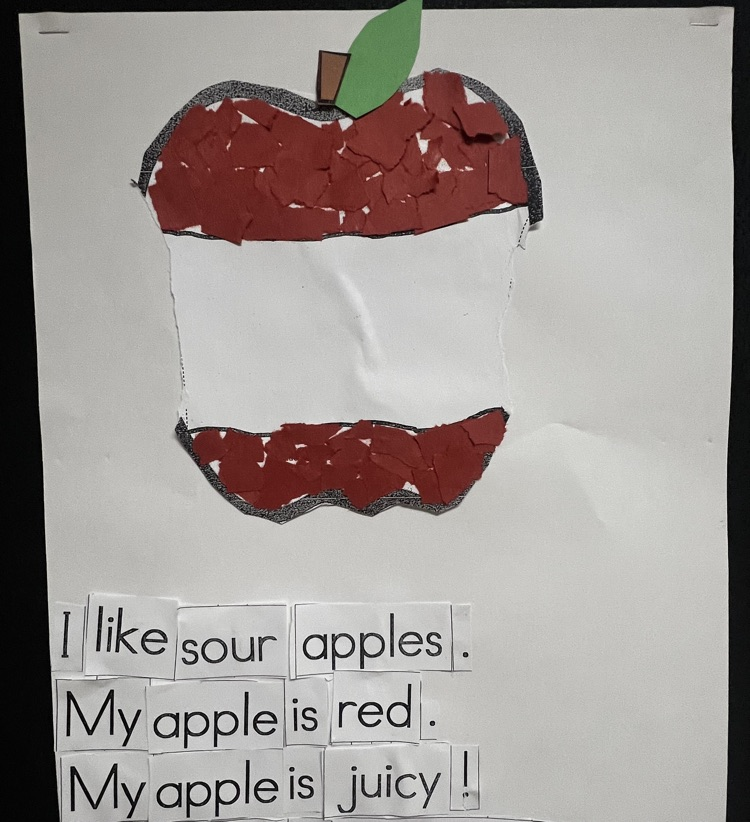 I like sour apples.
My apple is red.
My apple is juicy!